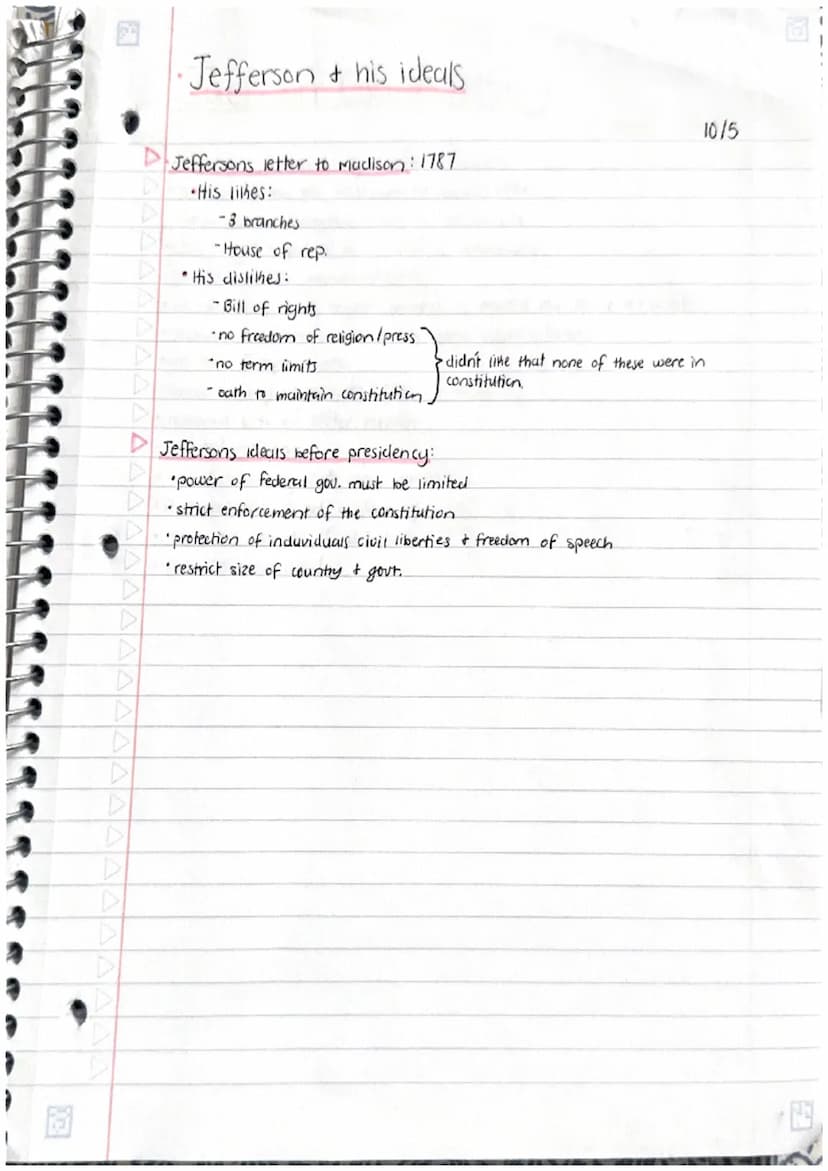 · Jefferson + his ideals
10/5
Jeffersons letter to Madison: 1787
• His likes:
- 3 branches
- House of rep.
• His dislikes:
- Bill of rights
- no freedom of religion/press
- no term limits
didn't like that none of these were in
constitution
- oath to maintain constitution
Jeffersons ideals before presidency:
• power of federal gov. must be limited
• strict enforcement of the constitution
• protection of induviduals civil liberties + freedom of speech
• restrict size of country + govt.